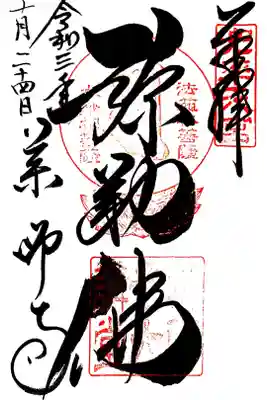 奉拝
弥勒佛
令和三年
十月二十四日
薬師寺